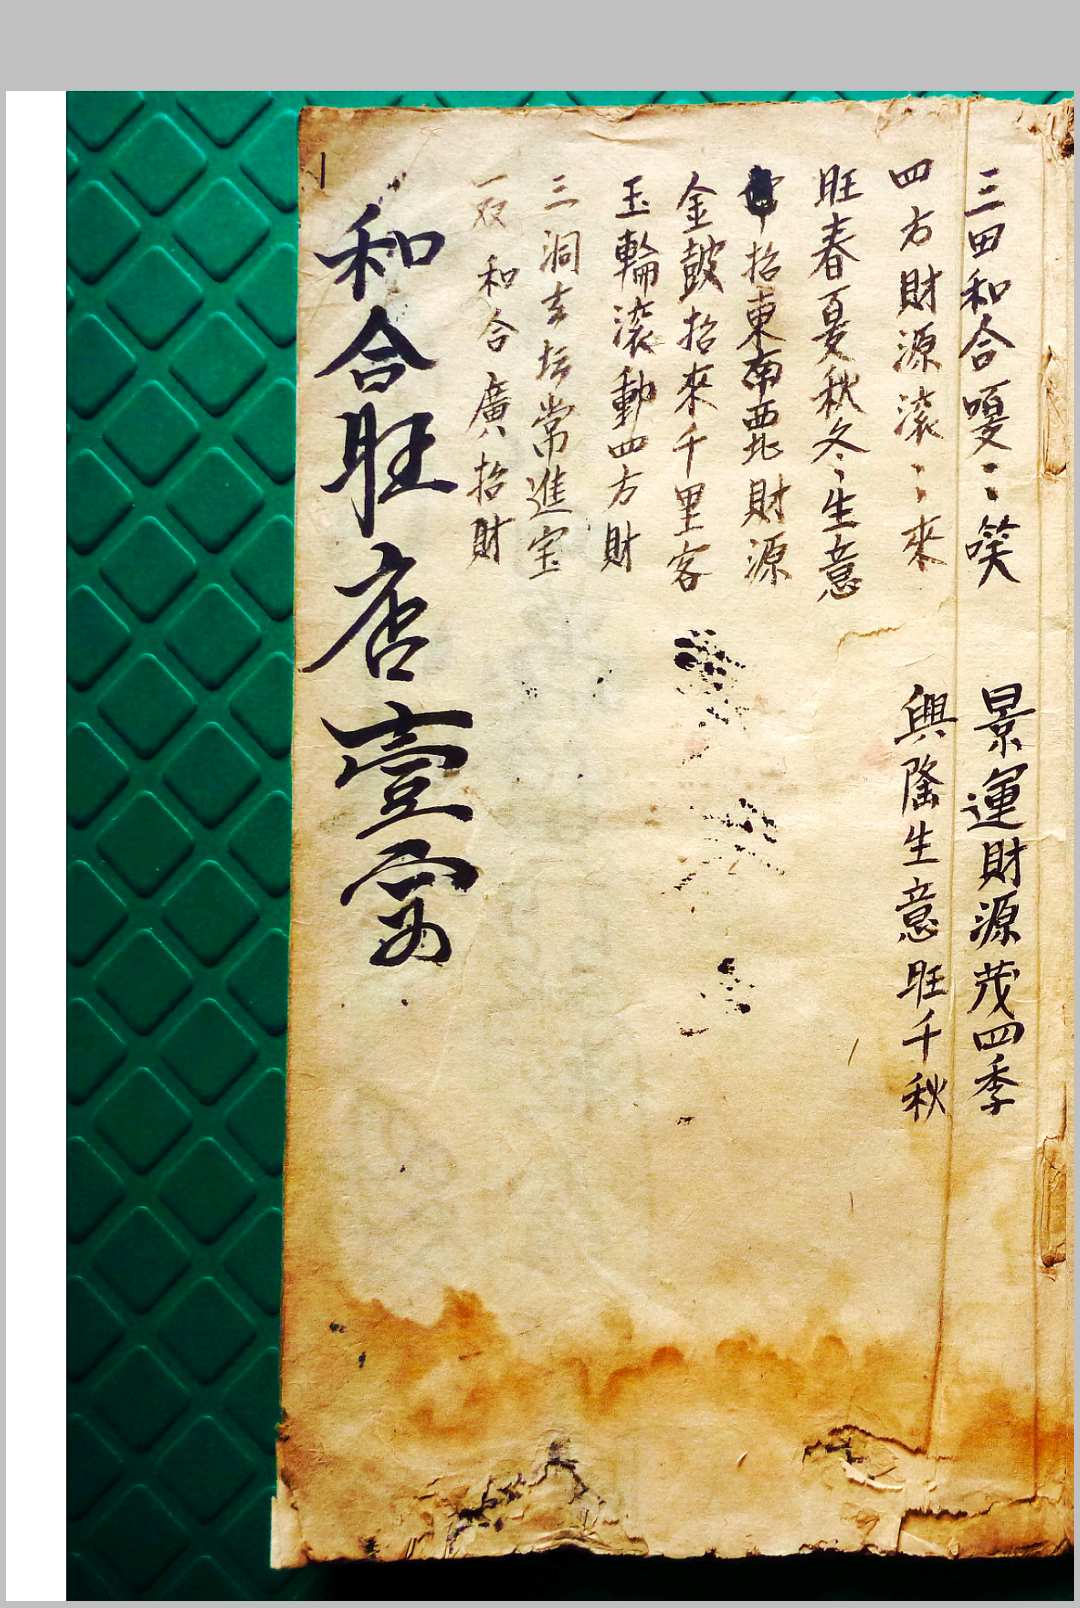 三田和合嗄〻笑
景運財源茂四季
四方財源滾〻來
興隆生意旺千秋
旺春夏秋冬〻生意
招東南西北財源
金鼓招來千里客
玉輪滾動四方財
三洞玄坛常進宝
一双和合廣招財
和合旺店壹宗